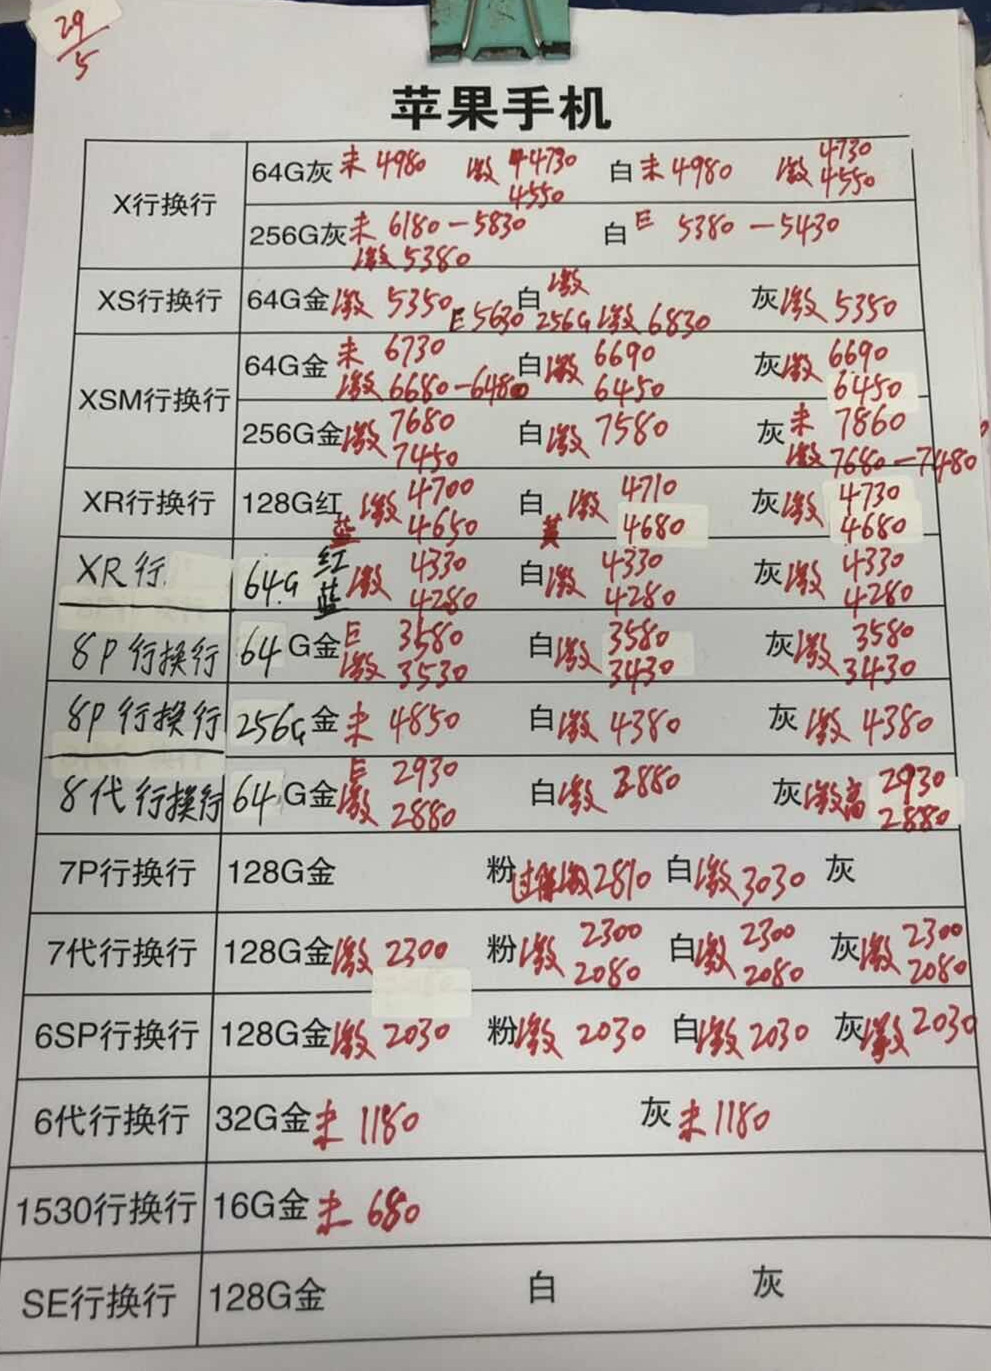 29/5
苹果手机
X行换行 64G灰 未 4980 激 4730 4550 白 未 4980 激 4730 4550
256G灰 未 6180-5830 激 5380 白 E 5380-5430
XS行换行 64G金 激 5350 E 5630 白 激 256G 激 6830 灰 激 5350
XSM行换行 64G金 未 6730 激 6680-6480 白 激 6690 6450 灰 激 6690 6450
256G金 激 7680 7450 白 激 7580 灰 未 7860 激 7680-7480
XR行换行 128G红 蓝 激 4700 4650 白 黄 激 4710 4680 灰 激 4730 4680
XR行 64G 红 蓝 激 4330 4280 白 激 4330 4280 灰 激 4330 4280
8P行换行 64G金 E 3580 激 3530 白 激 3580 3430 灰 激 3580 3430
8P行换行 256G金 未 4850 白 激 4380 灰 激 4380
8代行换行 64G金 E 2930 激 2880 白 激 2880 灰 激 高 2930 2880
7P行换行 128G金 粉 过 激 2810 白 激 3030 灰
7代行换行 128G金 激 2300 粉 激 2300 2080 白 激 2300 2080 灰 激 2300 2080
6SP行换行 128G金 激 2030 粉 激 2030 白 激 2030 灰 激 2030
6代行换行 32G金 未 1180 灰 未 1180
1530行换行 16G金 未 680
SE行换行 128G金 白 灰